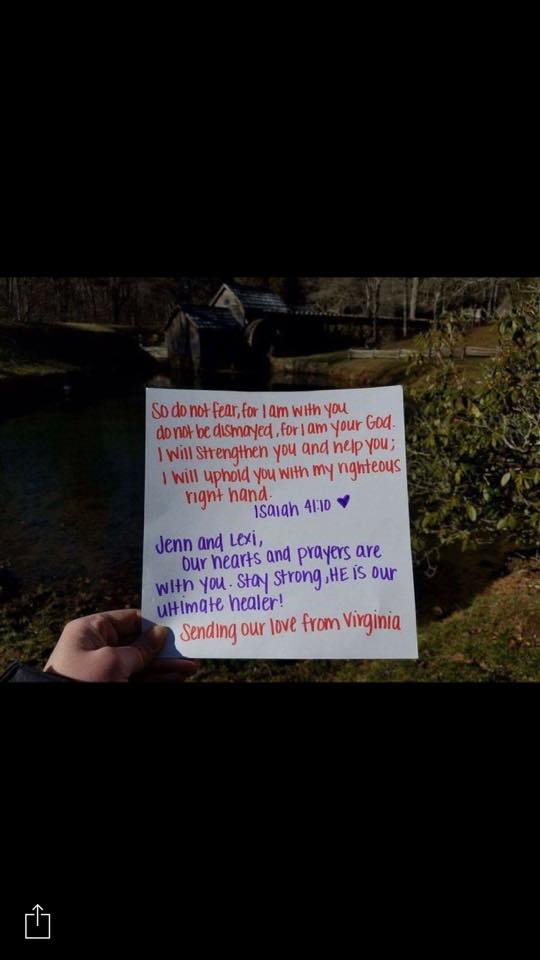 So do not fear, for I am with you
do not be dismayed, for I am your God.
I will strengthen you and help you;
I will uphold you with my righteous
right hand.
Isaiah 41:10 ♥
Jenn and Lexi,
Our hearts and prayers are
with you. Stay strong, HE is our
ultimate healer!
Sending our love from Virginia